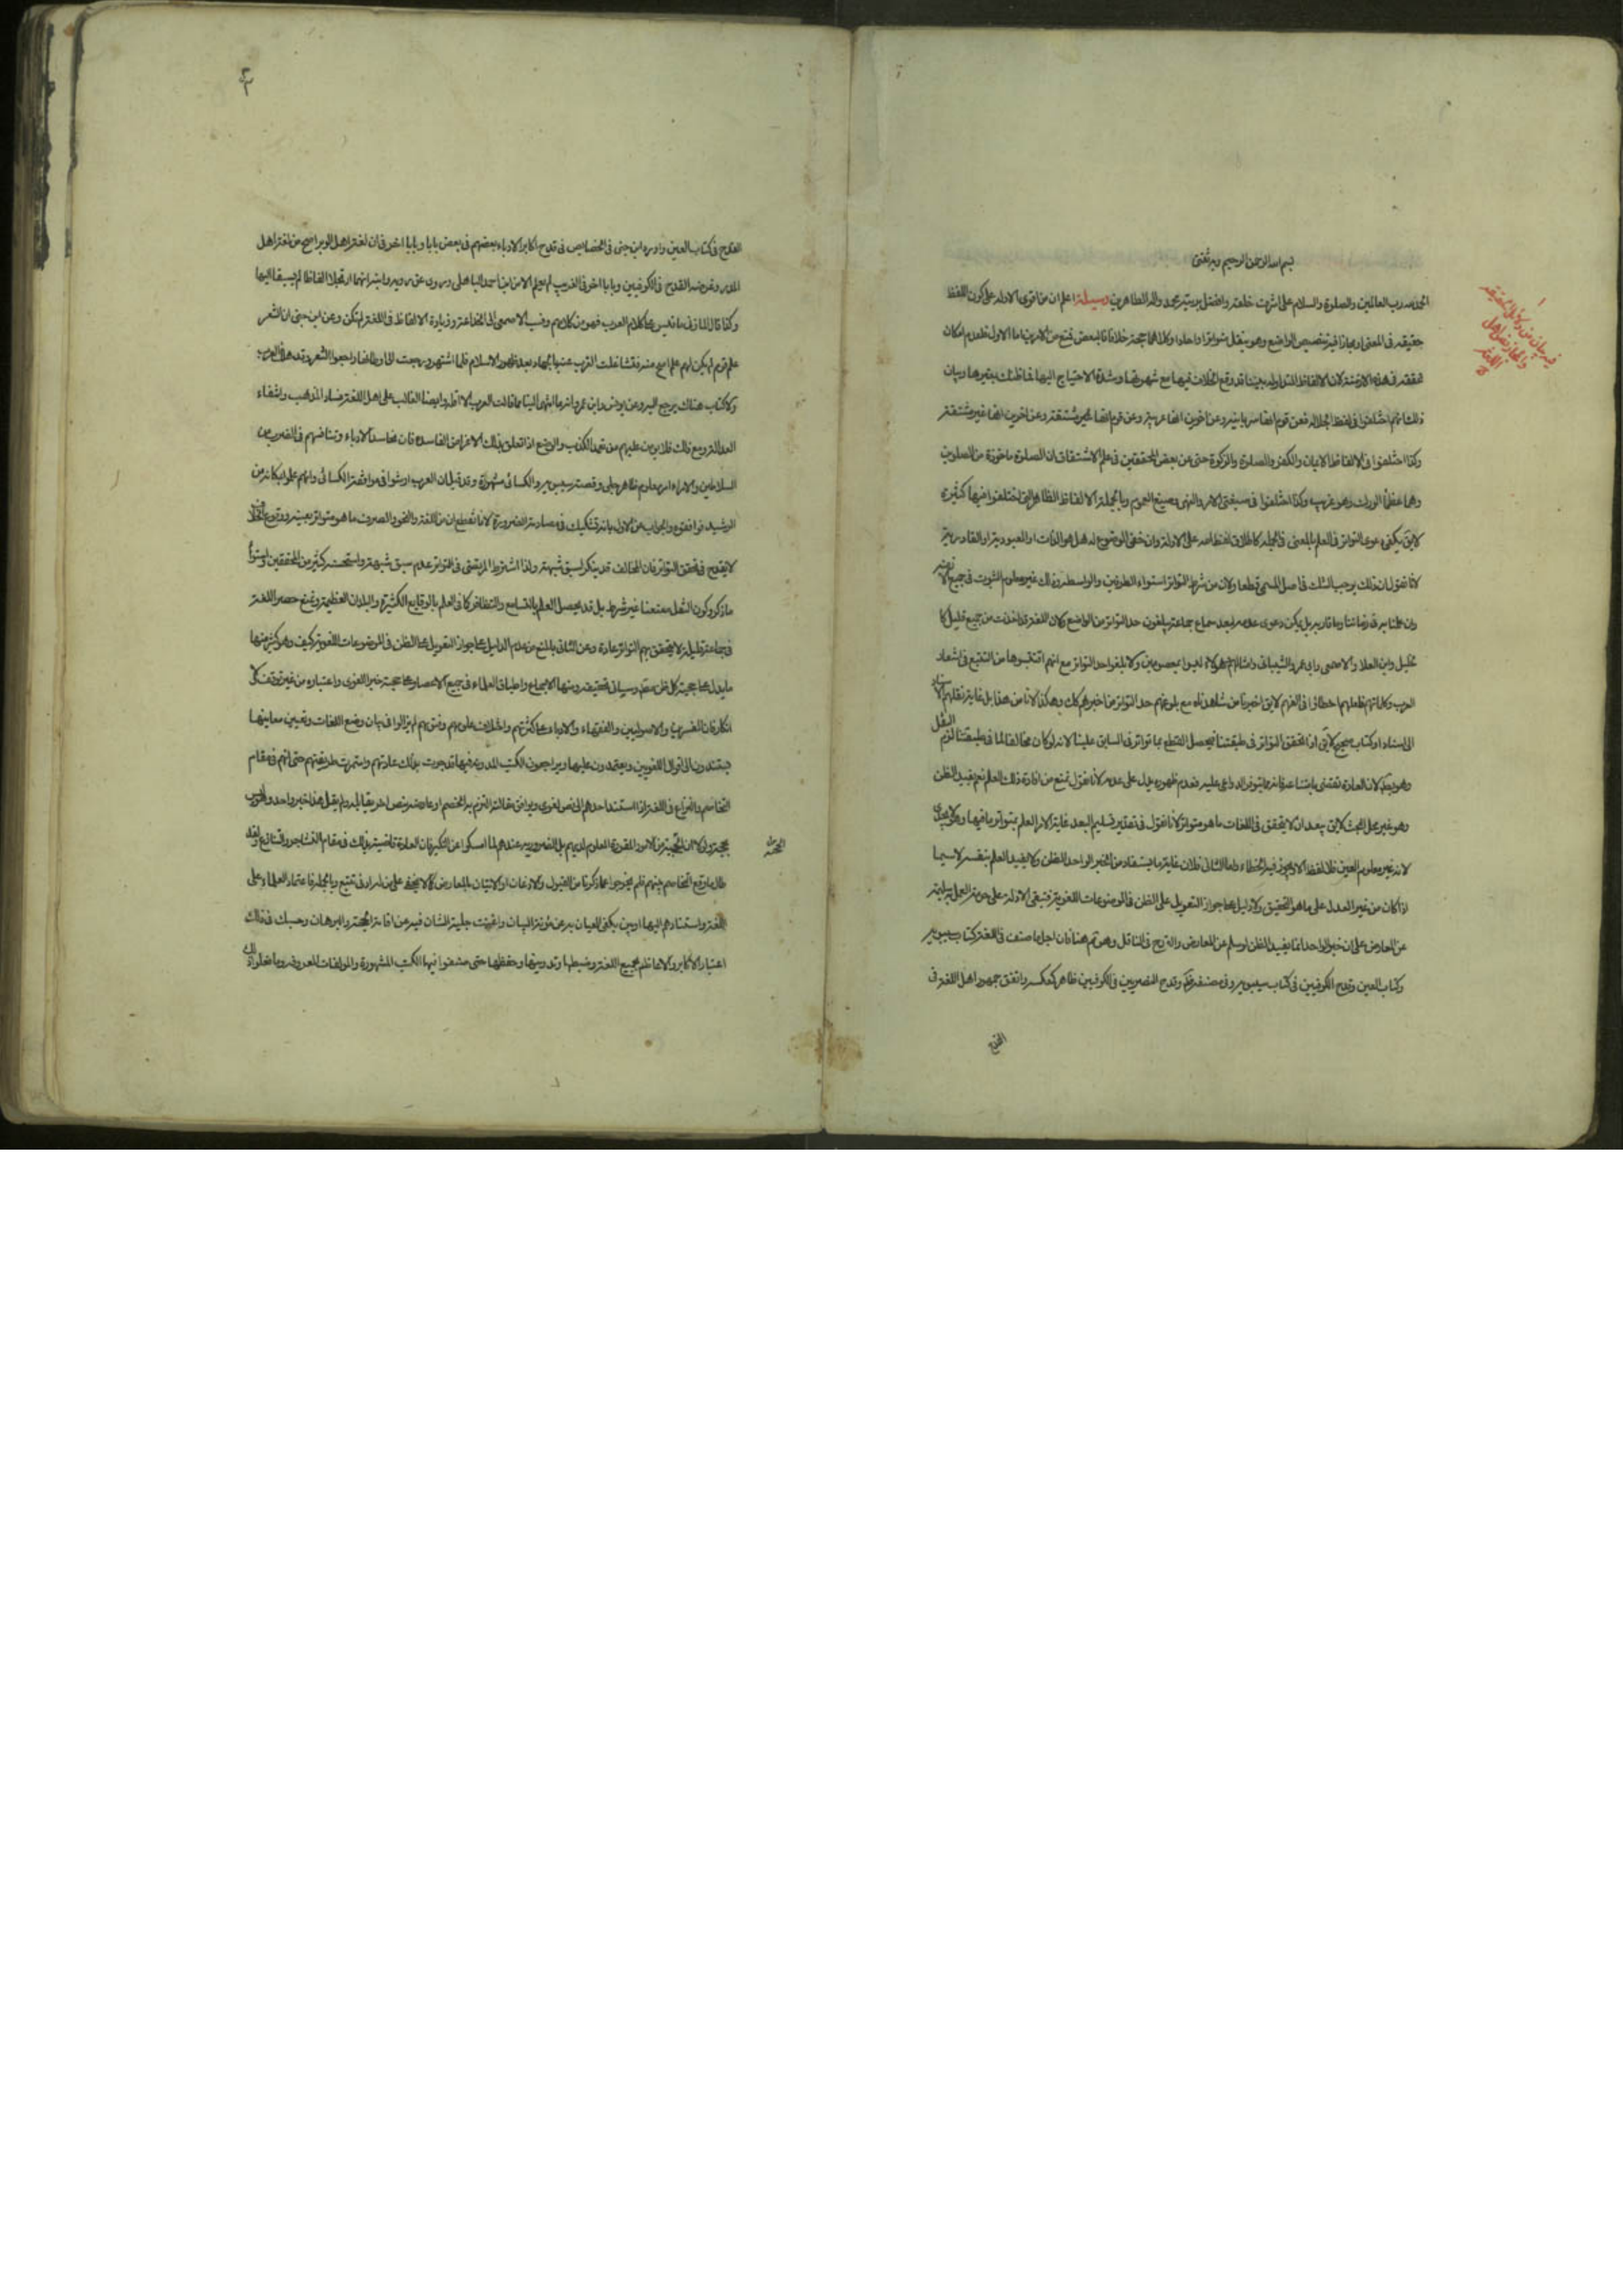 بسم الله الرحمن الرحيم وبه ثقتي
الحمد لله رب العالمين والصلوة والسلام على اشرف خلقه وافضل بريته محمد واله الطاهرين وسيلة اعلم ان من اقوى الادلة على كون اللفظ
حقيقة في المعنى او مجازا فيه تنصيص الواضع وهو ينقل متواترا واحادا وكلاهما حجة خلافا للبعض فمنع من الامرين اما الاول فلعدم امكان
تحققه في هذه الازمنة لان الالفاظ المتداولة بيننا قد وقع الخلاف فيها مع شهرتها وشدة الاحتياج اليها فما ظنك بغيرها وبيان
ذلك انهم اختلفوا في لفظ الجلالة فعن قوم انها سريانية وعن اخرين انها عربية وعن قوم انها غير مشتقة وعن اخرين انها مشتقة
وكذا اختلفوا في الالفاظ الايمان والكفر والصلوة والزكوة حتى عن بعض المحققين في علم الاشتقاق ان الصلوة ماخوذة من الصلوين
وهما عظما الورك وهو غريب وكذا اختلفوا في صيغتي الامر والنهي وصيغ العموم وبالجملة الالفاظ الظاهرة التي اختلفوا فيها كثيرة
لايق يكفي دعوى التواتر في العلم بالمعنى في الجملة كاطلاق لفظ الله على الاله وان خفي الموضوع له هل هو الذات او المعبودية او القادرية
لانا نقول ان ذلك يوجب الشك في اصل المسمى قطعا ولان من شرط التواتر استواء الطرفين والواسطة وذلك غير معلوم الثبوت في جميع الازمنة
وان علمنا به في زماننا وما قاربه بل يمكن دعوى عدمه لبعد سماع جماعة يبلغون حد التواتر من الواضع ولان اللغة قد اخذت من جميع قليل كا
لخليل وابن العلا والاصمعي وابي عمرو الشيباني وامثالهم وهؤلاء ليسوا بمعصومين ولا بلغوا حد التواتر مع انهم اقتبسوها من التتبع في اشعار
العرب وكلماتهم فلعلهم اخطاوا في الفهم لايق اخبرنا من شاهدناه مع بلوغهم حد التواتر من اخبرهم كك وهكذا لانا من هذا بل غاية نقلهم الاسناد
الى استاد او كتاب صحيح لايق اذا تحقق التواتر في طبقتنا فيحصل القطع بما تواتر في السابق علينا لانه لو كان مخالفا لما في طبقتنا لزم النقل
وهو بعيد لان العادة تقتضي باشاعته فانه مما يتوفر الدواعي عليه فعدم ظهوره يدل على عدمه لانا نقول نمنع من افادة ذلك العلم نعم يفيد الظن
وهو غير محل البحث لايق يبعد ان لا يتحقق في اللغات ما هو متواتر لانا نقول في تقدير تسليم البعد غاية الامر العلم بتواتر ما فيها وهو لا يجدى
لانه غير معلوم العين فلا لفظ الا ويجوز فيه الخطاء واما الثاني فلان غاية ما يستفاد من الخبر الواحد الظن ولا يفيد العلم بنفسه لا سيما
اذا كان من غير العدل على ما هو التحقيق ولا دليل على جواز التعويل على الظن في الموضوعات اللغوية فتبقى الادلة على حرمة العمل به سليمة
عن المعارض على ان خبر الواحد انما يفيد الظن لو سلم عن المعارض والقدح في الناقل وهو تم هنا فان اجل ما صنف في اللغة كتاب سيبويه
وكتاب العين وقدح الكوفيين في كتاب سيبويه وفي مصنفه وقدح البصريين في الكوفيين ظاهر كعكسه واتفق جمهور اهل اللغة في
القدح
القدح في كتاب العين واورد ابن جنى في الخصايص في قدح اكابر الادباء بعضهم في بعض بابا وبابا اخر في ان لغة اهل الوبر اصح من لغة اهل
المدر وغرضه القدح في الكوفيين وبابا اخر في الغريب لم يعلم الا من ابن احمد الباهلى وروى عن رويه وابيه انهما ارتجلا الفاظا لم يسبقا اليها
وكذا قال المازني ما قيس على كلام العرب فهو من كلامهم ونسب الاصمعي الى الخلاعة وزيادة الالفاظ في اللغة لم تكن وعن ابن جنى ان الشعر
علم قوم لم يكن لهم علم اصح منه فتشاغلت العرب عنه بالجهاد بعد ظهور الاسلام فلما اشتهر ورجعت الى اوطانها راجعوا الشعر وقد هلك العرب
ولا كتاب هناك يرجع اليه وعن يونس وابن عمرو انه ما انتهى الينا مما قالت العرب الا اقله وايضا الغالب على اهل اللغة فساد المذهب وانتفاء
العدالة ومع ذلك فلا يومن عليهم من تعمد الكذب والوضع اذا تعلق بذلك الاغراض الفاسدة فان تحاسد الادباء وتنافسهم في القرب من
السلاطين والامراء امر معلوم ظاهر جلي وقصة سيبويه والكسائي مشهورة وقد قيل ان العرب ارشوا في موافقة الكسائي وانهم علموا مكانه من
الرشيد فوافقوه والجواب عن الاول بانه تشكيك في مصادمة الضرورة لانا نقطع ان من اللغة والنحو والصرف ما هو متواتر بعينه ووقوع الخلاف
لا يقدح في تحقق التواتر فان المخالف قد ينكر لسبق شبهة ولذا اشترط المرتضى في التواتر عدم سبق شبهة واستحسنه كثير من المحققين واستواء
ما ذكر وكون النقل معنعنا غير شرط بل قد يحصل العلم بالتسامع والتظافر كما في العلم بالوقايع الكثيرة والبلدان العظيمة ونمنع حصر اللغة
في جماعة قليلة لا يتحقق بهم التواتر عادة وعن الثاني بالمنع من عدم الدليل على جواز التعويل على الظن في الموضوعات اللغوية كيف وهو كثير منها
ما يدل على حجية كل ظن معتد وسياتي تحقيقه ومنها الاجماع واطباق العلماء في جميع الاعصار على حجية خبر اللغوى واعتباره من غير توقف ولا
انكار فان المفسرين والاصوليين والفقهاء والادباء على كثرتهم واختلاف علومهم وفنونهم لم يزالوا في بيان وضع اللغات وتعيين معانيها
يستندون الى اقوال اللغويين ويعتمدون عليها ويراجعون الكتب المدونة فيها قد جرت بذلك عادتهم واستمرت طريقتهم حتى انهم في مقام
التخاصم والنزاع في اللغة اذا استند احدهم الى نص لغوى ويوافق مقالته التزم به الخصم او عارضه بنص اخر يقابله ولم يقل هذا خبر واحد وليس
بحجة ولولا ان الحجية من الامور المقررة المعلوم لديهم بل الضرورية عندهم لما امسكوا عن النكير فان العادة قاضية بذلك في مقام التشاجر والتنازع ولقد
طال ما وقع التخاصم بينهم فلم يخرجوا عما ذكرنا من القبول والاذعان او الاتيان بالمعارض كما لا يخفى على من له ادنى تتبع وبالجملة فاعتماد العلماء على
اللغة واستنادهم اليها امر بين يكفى العيان به عن مؤنة البيان واغنت جلية الشان فيه عن اقامة الحجة والبرهان وحسبك في ذلك
اعتبار الاكابر والاعاظم بجمع اللغة وضبطها وتدوينها وحفظها حتى صنفوا فيها الكتب المشهورة والمولفات المعروفة وما فعلوا ذلك